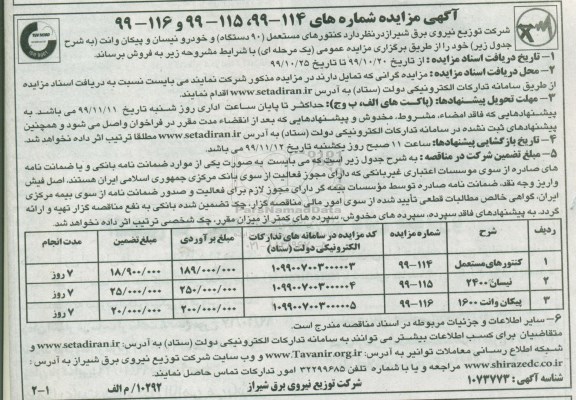 آگهی مزایده شماره های ۱۱۴-۹۹، ۱۱۵-۹۹ و ۱۱۶-۹۹
شرکت توزیع نیروی برق شیراز در نظر دارد کنتورهای مستعمل (۹۰ دستگاه) و خودرو نیسان و پیکان وانت (به شرح
جدول زیر) خود را از طریق برگزاری مزایده عمومی (یک مرحله ای) با شرایط مشروحه زیر به فروش برساند.
۱- تاریخ دریافت اسناد مزایده : از تاریخ ۹۹/۱۰/۲۰ تا تاریخ ۹۹/۱۰/۲۵
۲- محل دریافت اسناد مزایده : مزایده گرانی که تمایل دارند در مزایده مذکور شرکت نمایند می بایست نسبت به دریافت اسناد مزایده
از طریق سامانه تدارکات الکترونیکی دولت (ستاد) به آدرس www.setadiran.ir اقدام نمایند.
۳- مهلت تحویل پیشنهادها: (پاکت های الف، ب و ج): حداکثر تا پایان ساعت اداری روز شنبه تاریخ ۹۹/۱۱/۱۱ می باشد. به
پیشنهادهایی که فاقد امضاء، مشروط، مخدوش و پیشنهادهایی که بعد از انقضاء مدت مقرر در فراخوان واصل می شود و همچنین
پیشنهادهای ثبت نشده در سامانه تدارکات الکترونیکی دولت (ستاد) به آدرس www.setadiran.ir مطلقا ترتیب اثر داده نخواهد شد.
۴- تاریخ بازگشایی پیشنهادها: ساعت ۱۱ صبح روز یکشنبه تاریخ ۹۹/۱۱/۱۲ می باشد.
۵- مبلغ تضمین شرکت در مناقصه : به شرح جدول زیر است که می بایست به صورت یکی از موارد ضمانت نامه بانکی و یا ضمانت نامه
های صادره از سوی موسسات اعتباری غیربانکی که دارای مجوز فعالیت از سوی بانک مرکزی جمهوری اسلامی ایران هستند، اصل فیش
واریز وجه نقد، ضمانت نامه صادره توسط مؤسسات بیمه گر دارای مجوز لازم برای فعالیت و صدور ضمانت نامه از سوی بیمه مرکزی
ایران، گواهی خالص مطالبات قطعی تأیید شده از سوی امور مالی مناقصه گزار، چک تضمین شده بانکی به نفع مناقصه گزار تهیه و ارائه
گردد. به پیشنهادهای فاقد سپرده، سپرده های مخدوش، سپرده های کمتر از میزان مقرر، چک شخصی ترتیب اثر داده نخواهد شد.
ردیف شرح شماره مزایده کد مزایده در سامانه های تدارکات الکترونیکی دولت (ستاد) مبلغ برآوردی مبلغ تضمین مدت انجام
۱ کنتورهای مستعمل ۹۹-۱۱۴ ۱۰۹۹۰۰۷۰۰۳۰۰۰۰۰۳ ۱۸۹/۰۰۰/۰۰۰ ۱۸/۹۰۰/۰۰۰ ۷ روز
۲ نیسان ۲۴۰۰ ۹۹-۱۱۵ ۱۰۹۹۰۰۷۰۰۳۰۰۰۰۰۴ ۲۵۰/۰۰۰/۰۰۰ ۲۵/۰۰۰/۰۰۰ ۷ روز
۳ پیکان وانت ۱۶۰۰ ۹۹-۱۱۶ ۱۰۹۹۰۰۷۰۰۳۰۰۰۰۰۵ ۲۰۰/۰۰۰/۰۰۰ ۲۰/۰۰۰/۰۰۰ ۷ روز
۶- سایر اطلاعات و جزئیات مربوطه در اسناد مناقصه مندرج است.
متقاضیان برای کسب اطلاعات بیشتر می توانند به سامانه تدارکات الکترونیکی دولت (ستاد) به آدرس: www.setadiran.ir و
شبکه اطلاع رسانی معاملات توانیر به آدرس: www.Tavanir.org.ir و وب سایت شرکت توزیع نیروی برق شیراز به آدرس:
www.shirazedc.co.ir مراجعه و یا با شماره تلفن ۳۲۲۹۹۶۸۵ امور تدارکات تماس حاصل نمایند.
شناسه آگهی : ۱۰۷۳۷۷۳ شرکت توزیع نیروی برق شیراز ۱۰۲۹۲/ م الف ۲-۱